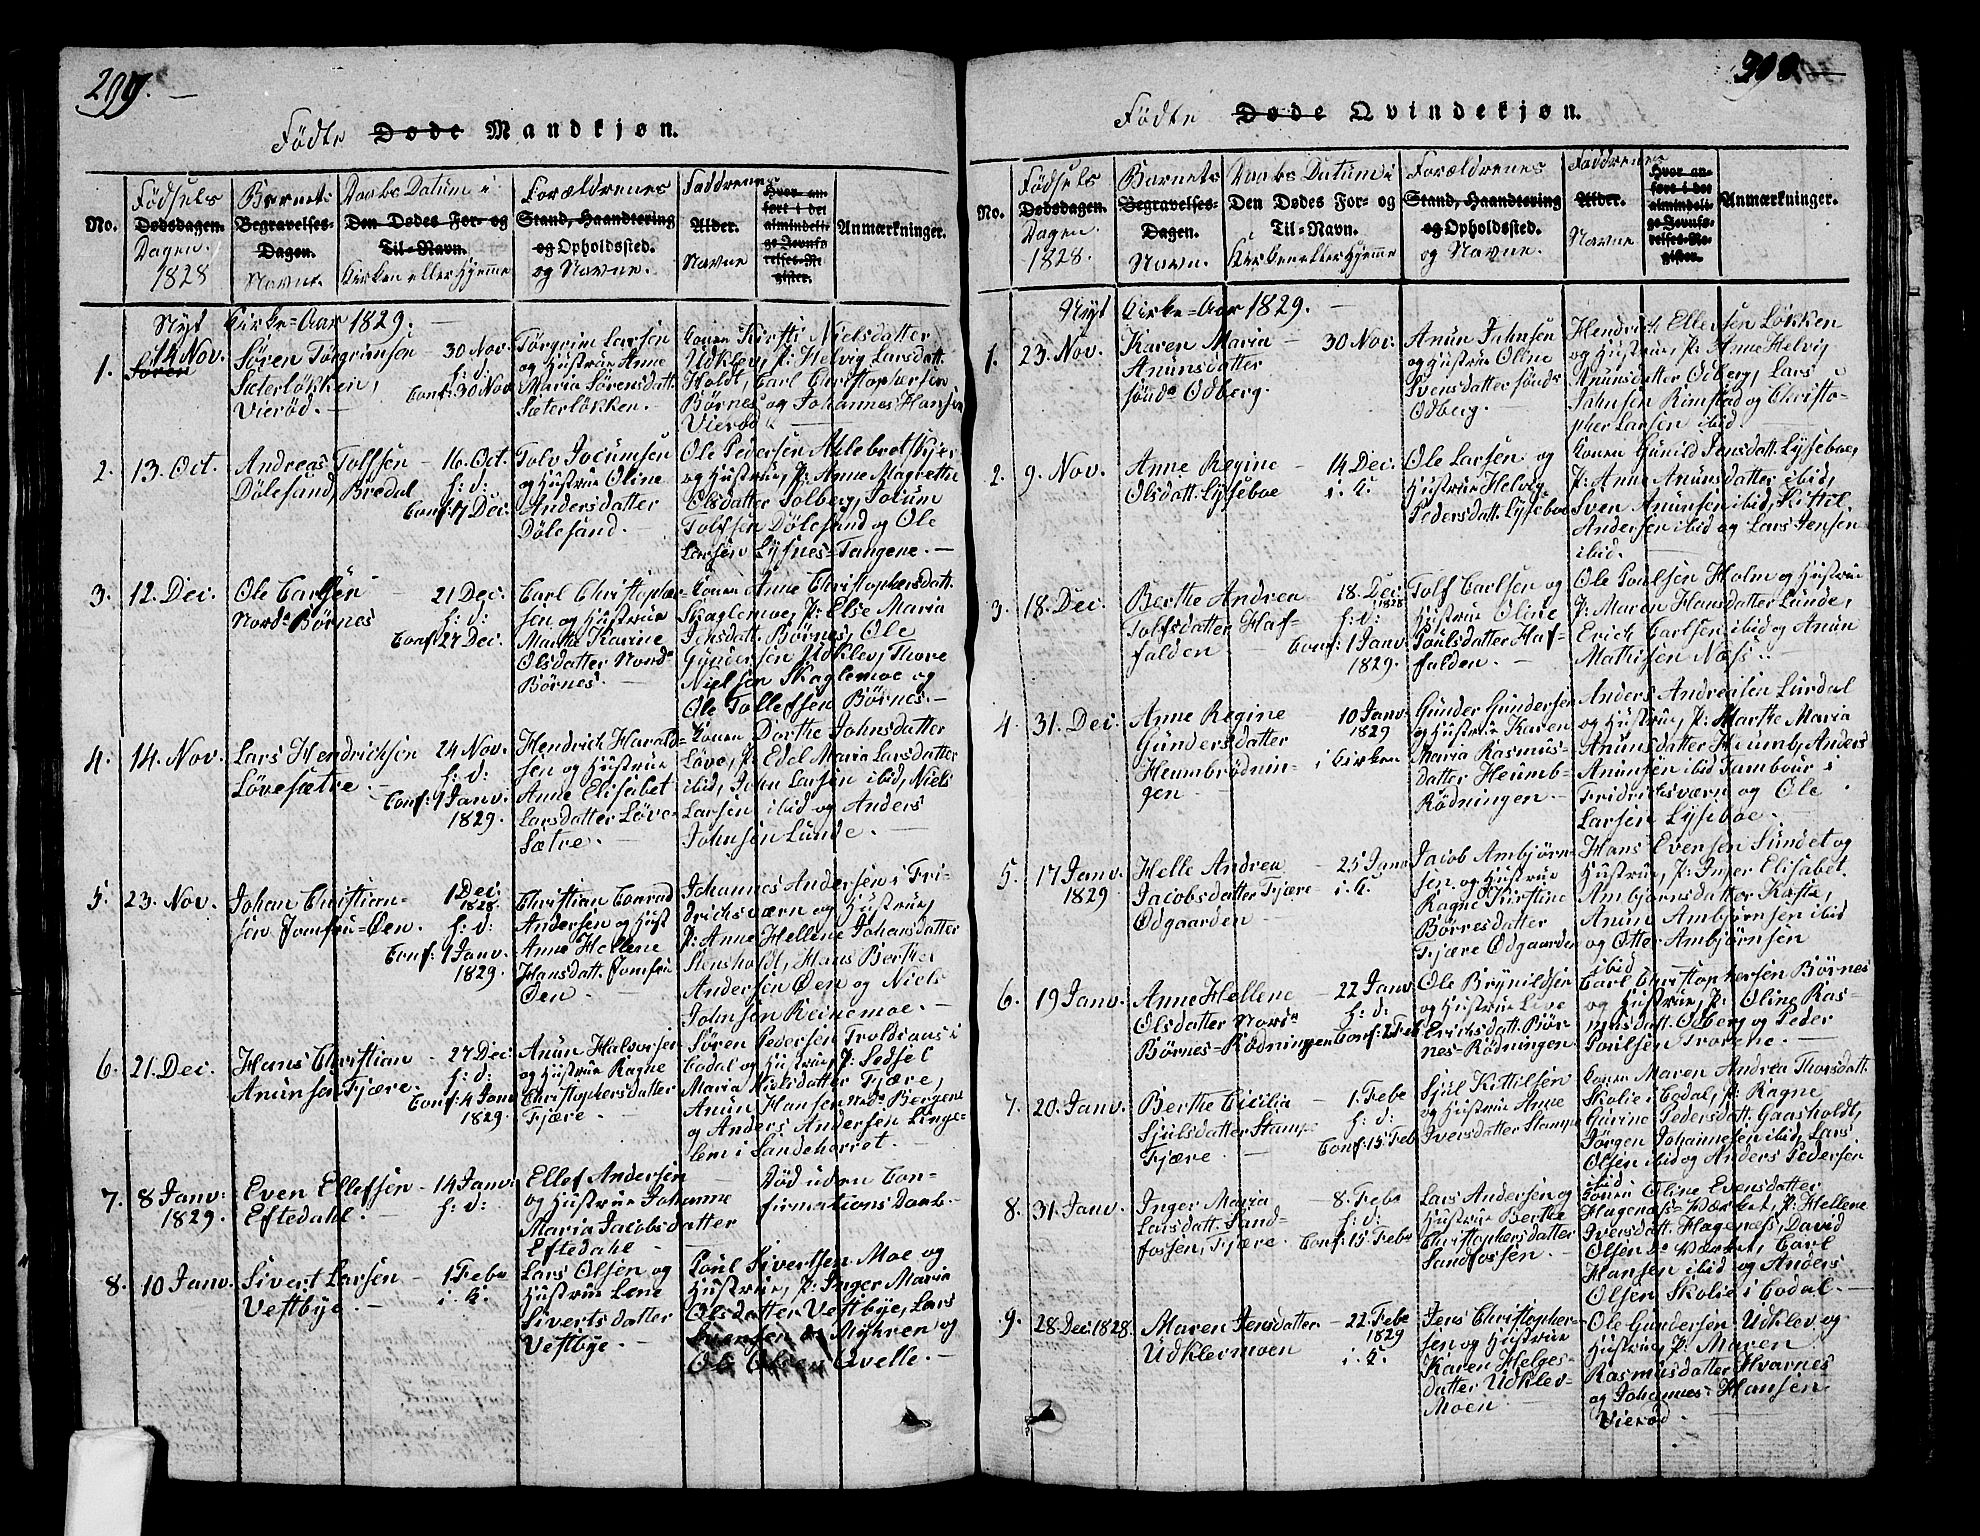 299.
Födte Døde Mandkjøn.
No.
Födsels
Dødsdagen.
Dagen.
1828
Barnets
Begravelses-
Dagen.
Navne.
Daabs Datum i
Den Dødes For- og
Til-Navn.
Kirken eller Hjemme
Forældrenes
Stand, Haandtering
og Opholdssted.
og Navne.
Faddrenes
Alder.
Navne
Hvor an-
ført i det
almindeli-
ge Jevnfø-
relses-Re-
gister.
Anmærkninger.
Nyt Kirke-Aar 1829.
1.
14 Nov.
Sören
Sören Törgrimsen
Sæterløkken,
Vierød.
30 Nov.
h: d:
Conf: 30 Nov
Törgrim Larsen
og Hustrue Anne
Maria Sörensdatt.
Sæterløkken.
Konen Kirsti Nielsdatter
Udklev, P: Helvig Larsdatt.
Holdt, Carl Christophersen
Börnes og Johannes Hansen
Vierød.
2.
13. Oct.
Andreas Tolfsen
Dölesand, Bredal
16. Oct.
h: d:
Conf: 17 Dec.
Tolv Jocumsen
og Hustrue Oline
Andersdatter
Dölesand.
Ole Pedersen
og Hustrue, P: Anne Magrethe
Olsdatter Solberg, Jocum
Tolfsen Dölesand og Ole
Larsen Lysnes-Tangene.
3.
12. Dec.
Ole Carlsen
Nordr Börnes
21 Dec.
h: d:
Conf: 27 Dec.
Carl Christopher-
sen og Hustrue
Marthe Karine
Olsdatter Nordr
Börnes.
Konen Anne Christophersdatt.
Skaglemoe, P: Else Maria
Jensdatt. Börnes, Ole
Gundersen Udklev, Thore
Nielsen Skaglemoe og
Ole Tollefsen Börnes.
4.
14. Nov.
Lars Hendrichsen
Lövesætre.
24 Nov.
h: d:
Conf: 1 Janv:
1829.
Hendrich Harald-
sen og Hustrue
Anne Elisabet
Larsdatter Löve-
Sætre.
Konen Dorthe Johnsdatter
Löve, P: Edel Maria Larsdatter
ibid, John Larsen ibid, Niels
Larsen ibid og Anders
Johnsen Lunde.
5.
23. Nov.
Johan Christian-
sen Jomfru-Öen.
1 Dec.
1828.
h: d:
Conf: 1 Janv.
1829.
Christian Conrad
Andersen og Hust
Anne Hellene
Hansdatt. Jomfru
Öen.
Johannes Andersen i Fri-
drichsværn og Hustrue,
P: Anne Hellene Johansdatter
Stensholt, Hans Berthel
Andersen Öen og Niels
Johnsen Reinemoe.
6.
21. Dec.
Hans Christian
Anunsen Fjære.
27 Dec.
h: d:
Conf: 4 Janv
1829.
Anun Halvorsen
og Hustrue Ragne
Christophersdatter
Fjære.
Sören Pedersen Troldsaas i
Eodal og Hustrue, P: Sedsel
Maria Nielsdatter Fjære,
Anun Hansen Nordr Bergene
og Anders Andersen Linge-
lem i Sandeherret.
7.
8 Janv:
1829.
Even Ellefsen
Eftedahl.
14 Janv:
h: d:
Ellef Andersen
og Hustrue Johanne
Maria Jacobsdatter
Eftedahl
Död uden Con-
firmations Daab.
8.
10 Janv.
Sivert Larsen
Vestbye.
1 Febr
i. K.
Lars Olsen og
Hustrue Lene
Sivertsdatter
Vestbye.
Poul Sivertsen Moe og
Hustrue, P: Inger Maria
Olsdatter Vestbye, Lars
Svensen Myhren og
Ole Olsen Qvelle.
300.
Födte Døde Qvindekjøn.
No.
Födsels
Dødsdagen.
Dagen.
1828.
Barnets
Begravelses-
Dagen.
Navn.
Daabs Datum i
Den Dødes For- og
Til-Navn.
Kirken eller Hjemme
Forældrenes
Stand, Haandtering
og Opholdssted.
og Navne.
Faddrenes
Alder.
Navne
Hvor an-
ført i det
almindeli-
ge Jevnfø-
relses-Re-
gister.
Anmærkninger.
Nyt Kirke-Aar 1829.
1.
23. Nov.
Karen Maria
Anunsdatter
söndr Odberg.
30 Nov:
Anun Johnsen
og Hustrue Oline
Svensdatter söndr
Odberg.
Hendrich Ellefsen Lökken
og Hustrue, P: Anne Helvig
Anunsdatter Odberg, Lars
Johnsen Rimstad og Christo-
pher Larsen ibid
2.
9. Nov.
Anne Regine
Olsdatt. Lyseboe
14 Dec.
i. K.
Ole Larsen og
Hustrue Helvig
Pedersdatt. Lyseboe
Konen Gunild Jensdatt. Lyseboe,
P: Anne Anunsdatter ibid,
Sven Anunsen ibid, Kittel
Andersen ibid og Lars Jensen
ibid.
3.
18. Dec.
Berthe Andrea
Tolfsdatter Haf-
falden
18. Dec.
1828
h: d:
Conf: 1 Janv.
1829.
Tolf Carlsen og
Hustrue Oline
Poulsdatter Haf-
falden.
Ole Poulsen Holm og Hustrue
P: Maren Hansdatter Lunde,
Erich Carlsen ibid og Anun
Mathisen Næss.
4.
31. Dec.
Anne Regine
Gundersdatter
Heumbrödnin-
gen.
10 Janv:
1829
i Kirken
Gunder Gundersen
og Hustrue Karen
Maria Rasmus-
datter Heumb-
Rödningen.
Anders Andreasen Lurdal
og Hustrue, P: Marthe Maria
Anunsdatter Heumb, Anders
Anunsen ibid Tambour i
Fridrichsværn og Ole
Larsen Lyseboe.
5.
17 Janv.
1829
Helle Andrea
Jacobsdatter Fjære-
Odgaarden
25 Janv
i. K.
Jacob Ambjörn-
sen og Hustrue
Ragne Kirstine
Börresdatter
Fjære Odgaarden
Hans Evensen Sundet og
Hustrue, P: Inger Elisabet
Ambjörnsdatter Kaste,
Anun Ambjörnsen ibid
og Otter Ambjörnsen
ibid
6.
19 Janv.
Anne Hellene
Olsdatter Nordr
Börnes-Rödningen
22 Janv.
h: d:
Conf: 2 Feb
Ole Brynildsen
og Hustrue Live
Erichsdatt. Bör-
nes-Rödningen.
Carl Christophersen Börnes
og Hustrue, P: Oline Ras-
musdatt. Odberg og Peder
Poulsen Trorene.
7.
20. Janv.
Berthe Cicilia
Sjulsdatter Stamp
Fjære.
1. Febr
h: d:
Conf: 15 Feb
Sjul Kittilsen
og Hustrue Anne
Iversdatter Stamp
Konen Maren Andrea Thorsdatt.
Skolie i Eodal, P: Ragne
Gurine Pedersdatt. Gaasholdt,
Jörgen Johannesen ibid, Lars
Olsen ibid og Anders Pedersen
ibid
8.
31. Janv.
Inger Maria
Larsdatt. Sand-
fossen, Fjære.
8. Febr
h: d:
Conf: 15 Febr
Lars Andersen og
Hustrue Berthe
Christophersdatter
Sandfossen.
Konen Oline Evensdatter
Hagenæs-Værket, P: Hellene
Iversdatt. Hagenæs, David
Olsen ds Værket, Carl
Hansen ibid og Anders
Olsen Skolie i Eodal.
9.
28. Dec. 1828.
Maren Jensdatter
Udklevmoen
22. Febr
1829
i. K.
Jens Christopher-
sen og Hustrue
Karen Helges-
datter Udklev-
Moen.
Ole Gundersen Udklev og
Hustrue, P: Maren
Rasmusdatter Hvarnes
og Johannes Hansen
Vierød.